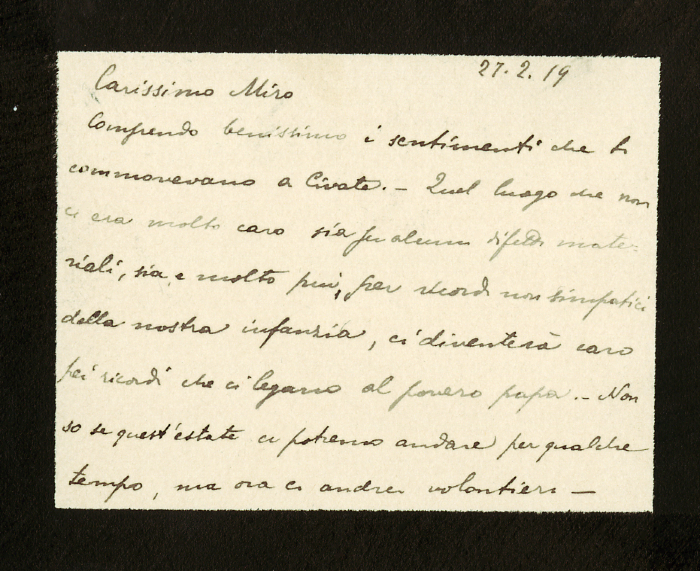 27.2.19
Carissimo Miro
Comprendo benissimo i sentimenti che ti
commovevano a Civate. – Quel luogo che non
ci era molto caro sia per alcuni difetti mate-
riali, sia, e molto più, per ricordi non simpatici
della nostra infanzia, ci diventerà caro
pei ricordi che ci legano al povero papà. – Non
so se quest'estate ci potremo andare per qualche
tempo, ma ora ci andrei volontieri –